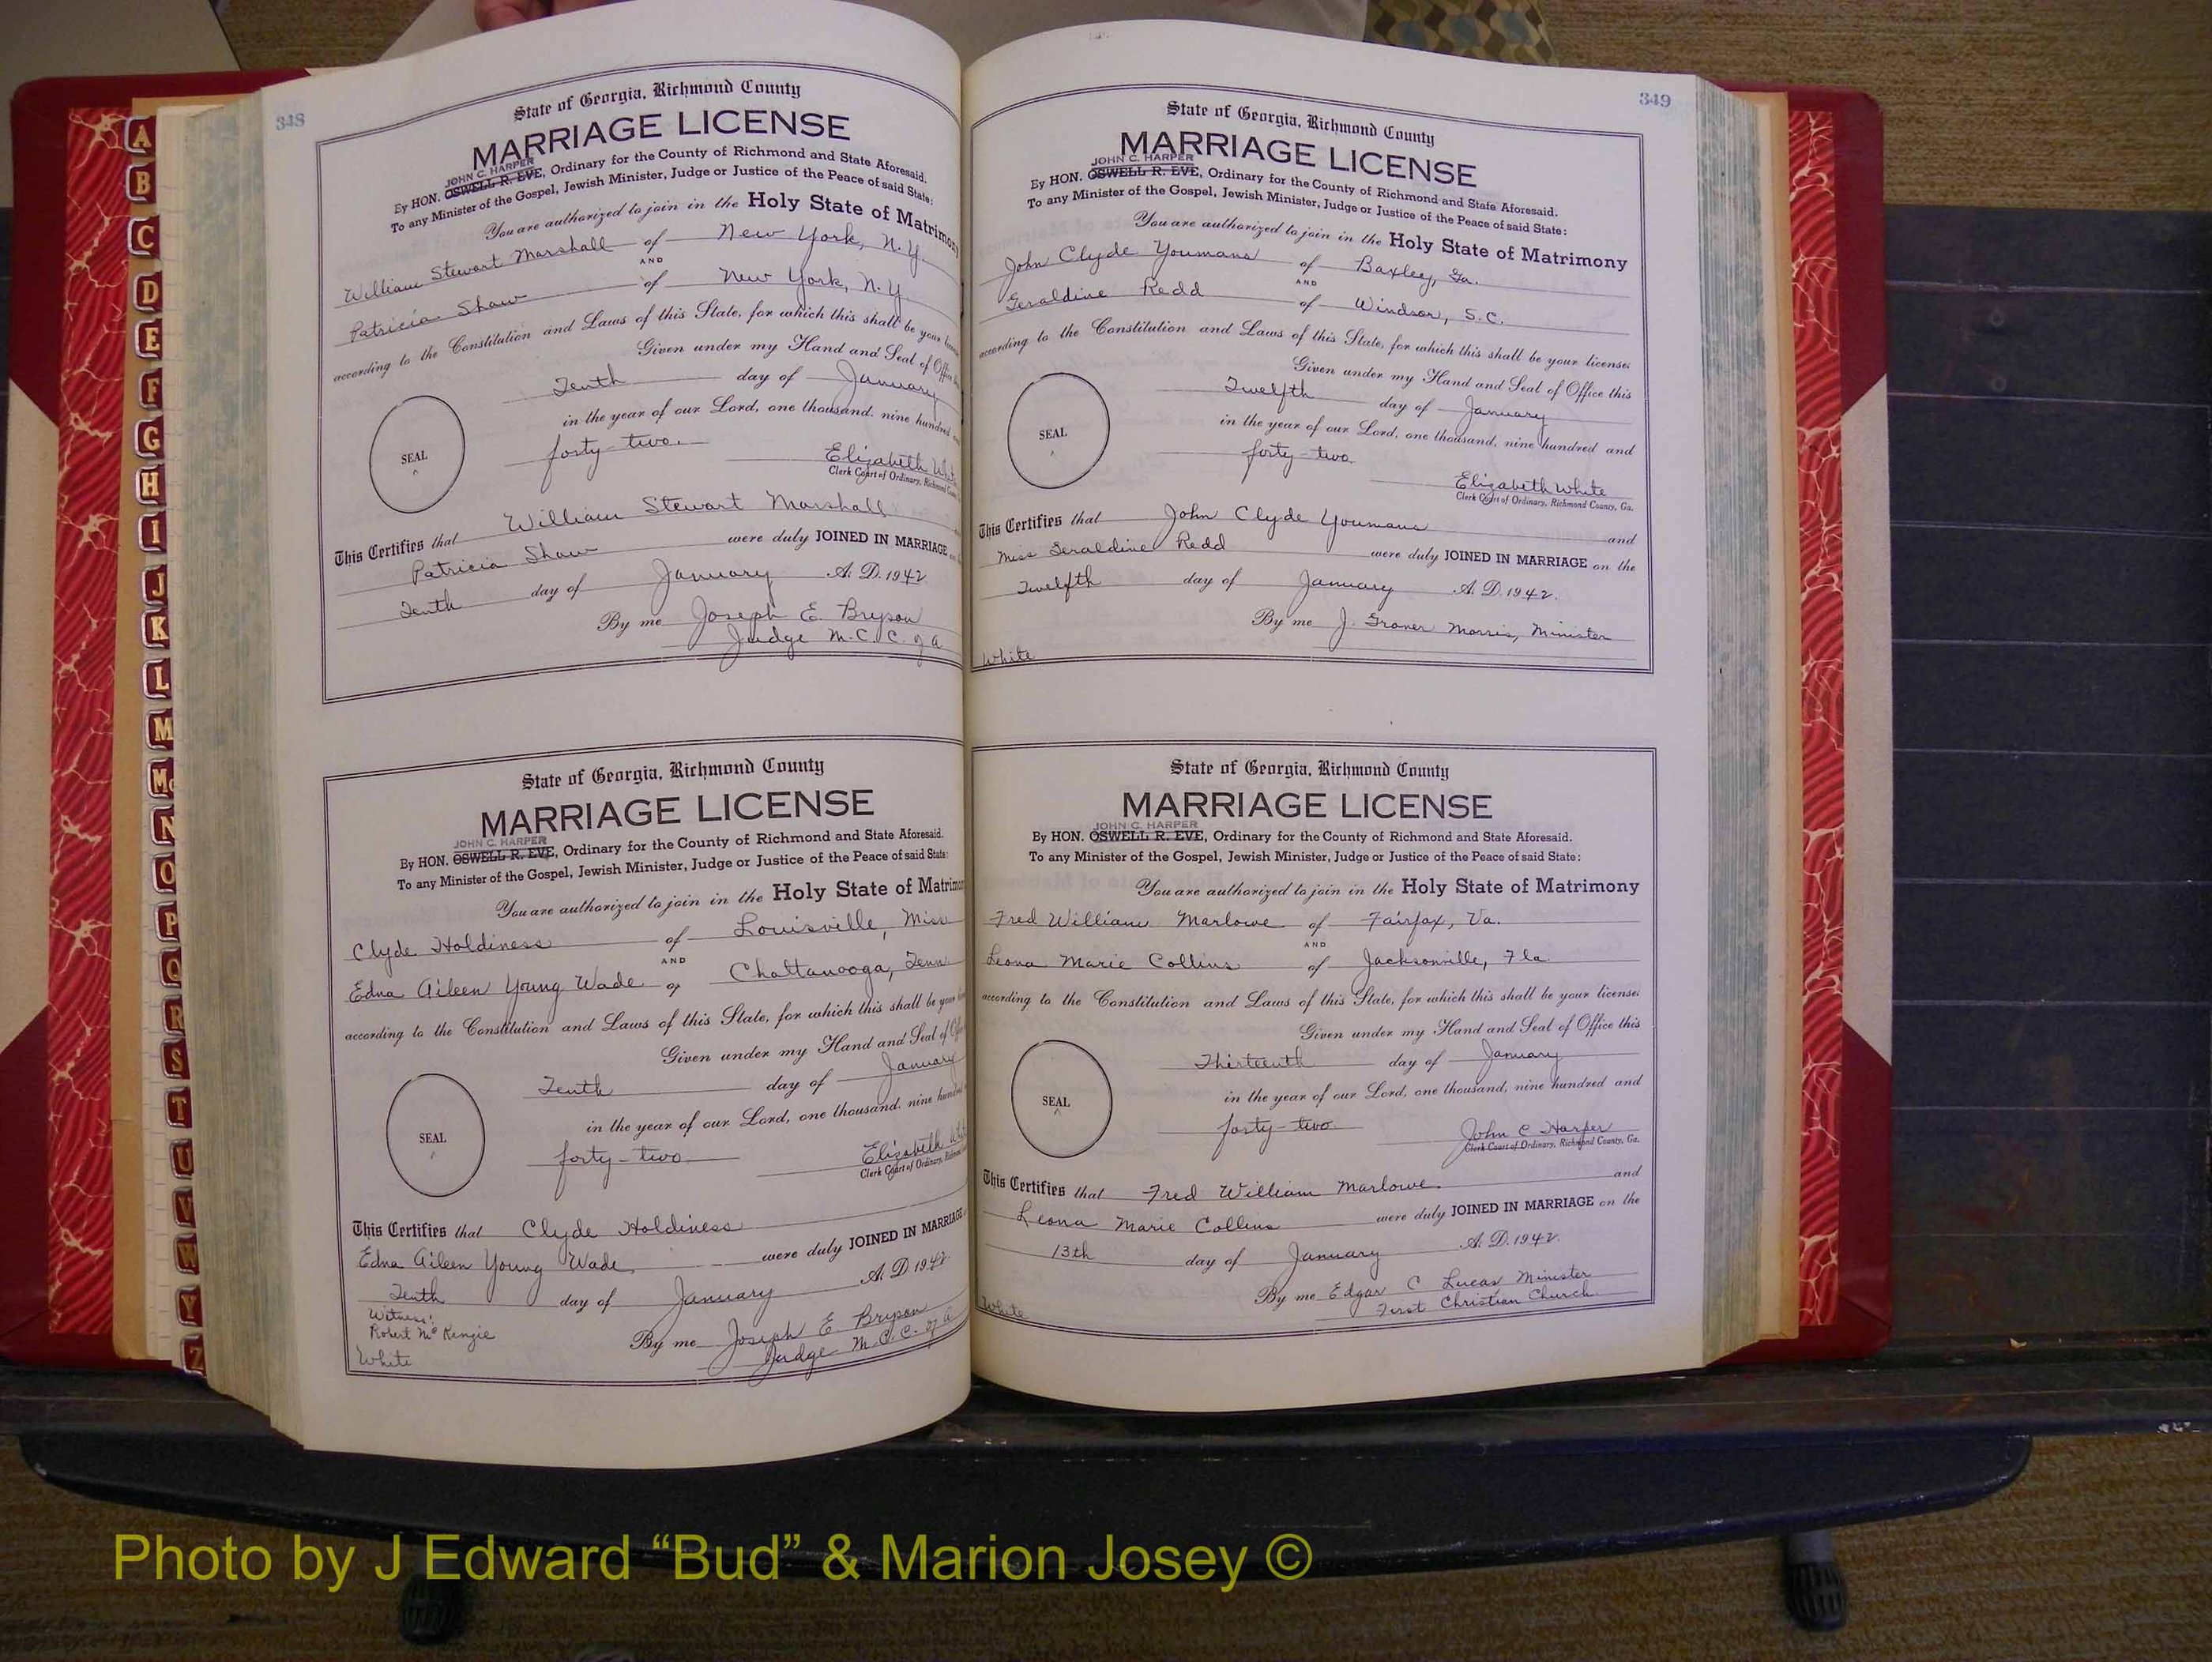 348
State of Georgia, Richmond County
MARRIAGE LICENSE
JOHN C. HARPER
By HON. OSWELL R. EVE, Ordinary for the County of Richmond and State Aforesaid.
To any Minister of the Gospel, Jewish Minister, Judge or Justice of the Peace of said State:
You are authorized to join in the Holy State of Matrimony
William Stewart Marshall of New York, N.Y.
AND
Patricia Shaw of New York, N.Y.
according to the Constitution and Laws of this State, for which this shall be your
Given under my Hand and Seal of Office
Tenth day of January
in the year of our Lord, one thousand, nine hundred
forty-two.
SEAL
Elizabeth
Clerk Court of Ordinary, Richmond
This Certifies that William Stewart Marshall
Patricia Shaw were duly JOINED IN MARRIAGE
Tenth day of January A. D. 1942
By me Joseph E. Bryson
Judge M.C.C. of a
State of Georgia, Richmond County
MARRIAGE LICENSE
JOHN C. HARPER
By HON. OSWELL R. EVE, Ordinary for the County of Richmond and State Aforesaid.
To any Minister of the Gospel, Jewish Minister, Judge or Justice of the Peace of said State:
You are authorized to join in the Holy State of
Clyde Holdiness of Louisville, Miss
AND
Edna Aileen Young Wade of Chattanooga, Tenn
according to the Constitution and Laws of this State, for which this shall be your
Given under my Hand and Seal of
Tenth day of January
in the year of our Lord, one thousand, nine
forty-two
SEAL
Elizabeth
Clerk Court of Ordinary,
This Certifies that Clyde Holdiness
Edna Aileen Young Wade were duly JOINED IN MARRIAGE
Tenth day of January A. D. 1942
Witness:
Robert McKenzie
By me Joseph E Bryson
Judge M.C.C. of a
White
349
State of Georgia, Richmond County
MARRIAGE LICENSE
JOHN C. HARPER
By HON. OSWELL R. EVE, Ordinary for the County of Richmond and State Aforesaid.
To any Minister of the Gospel, Jewish Minister, Judge or Justice of the Peace of said State:
You are authorized to join in the Holy State of Matrimony
John Clyde Youmans of Baxley, Ga.
AND
Geraldine Redd of Windsor, S.C.
according to the Constitution and Laws of this State, for which this shall be your license:
Given under my Hand and Seal of Office this
Twelfth day of January
in the year of our Lord, one thousand, nine hundred and
forty-two
SEAL
Elizabeth White
Clerk Court of Ordinary, Richmond County, Ga.
This Certifies that John Clyde Youmans and
Miss Geraldine Redd were duly JOINED IN MARRIAGE on the
Twelfth day of January A. D. 1942.
By me J. Graner Morris, Minister
White
State of Georgia, Richmond County
MARRIAGE LICENSE
JOHN C. HARPER
By HON. OSWELL R. EVE, Ordinary for the County of Richmond and State Aforesaid.
To any Minister of the Gospel, Jewish Minister, Judge or Justice of the Peace of said State:
You are authorized to join in the Holy State of Matrimony
Fred William Marlowe of Fairfax, Va.
AND
Leona Marie Collins of Jacksonville, Fla.
according to the Constitution and Laws of this State, for which this shall be your license:
Given under my Hand and Seal of Office this
Thirteenth day of January
in the year of our Lord, one thousand, nine hundred and
forty-two
SEAL
John C Harper
Clerk Court of Ordinary, Richmond County, Ga.
This Certifies that Fred William Marlowe. and
Leona Marie Collins were duly JOINED IN MARRIAGE on the
13th day of January A. D. 1942.
By me Edgar C Lucas Minister
First Christian Church
White
A
B
C
D
E
F
G
H
I
J
K
L
M
Mc
N
O
P
Q
R
S
T
U
V
W
Y
Z
Photo by J Edward “Bud” & Marion Josey ©